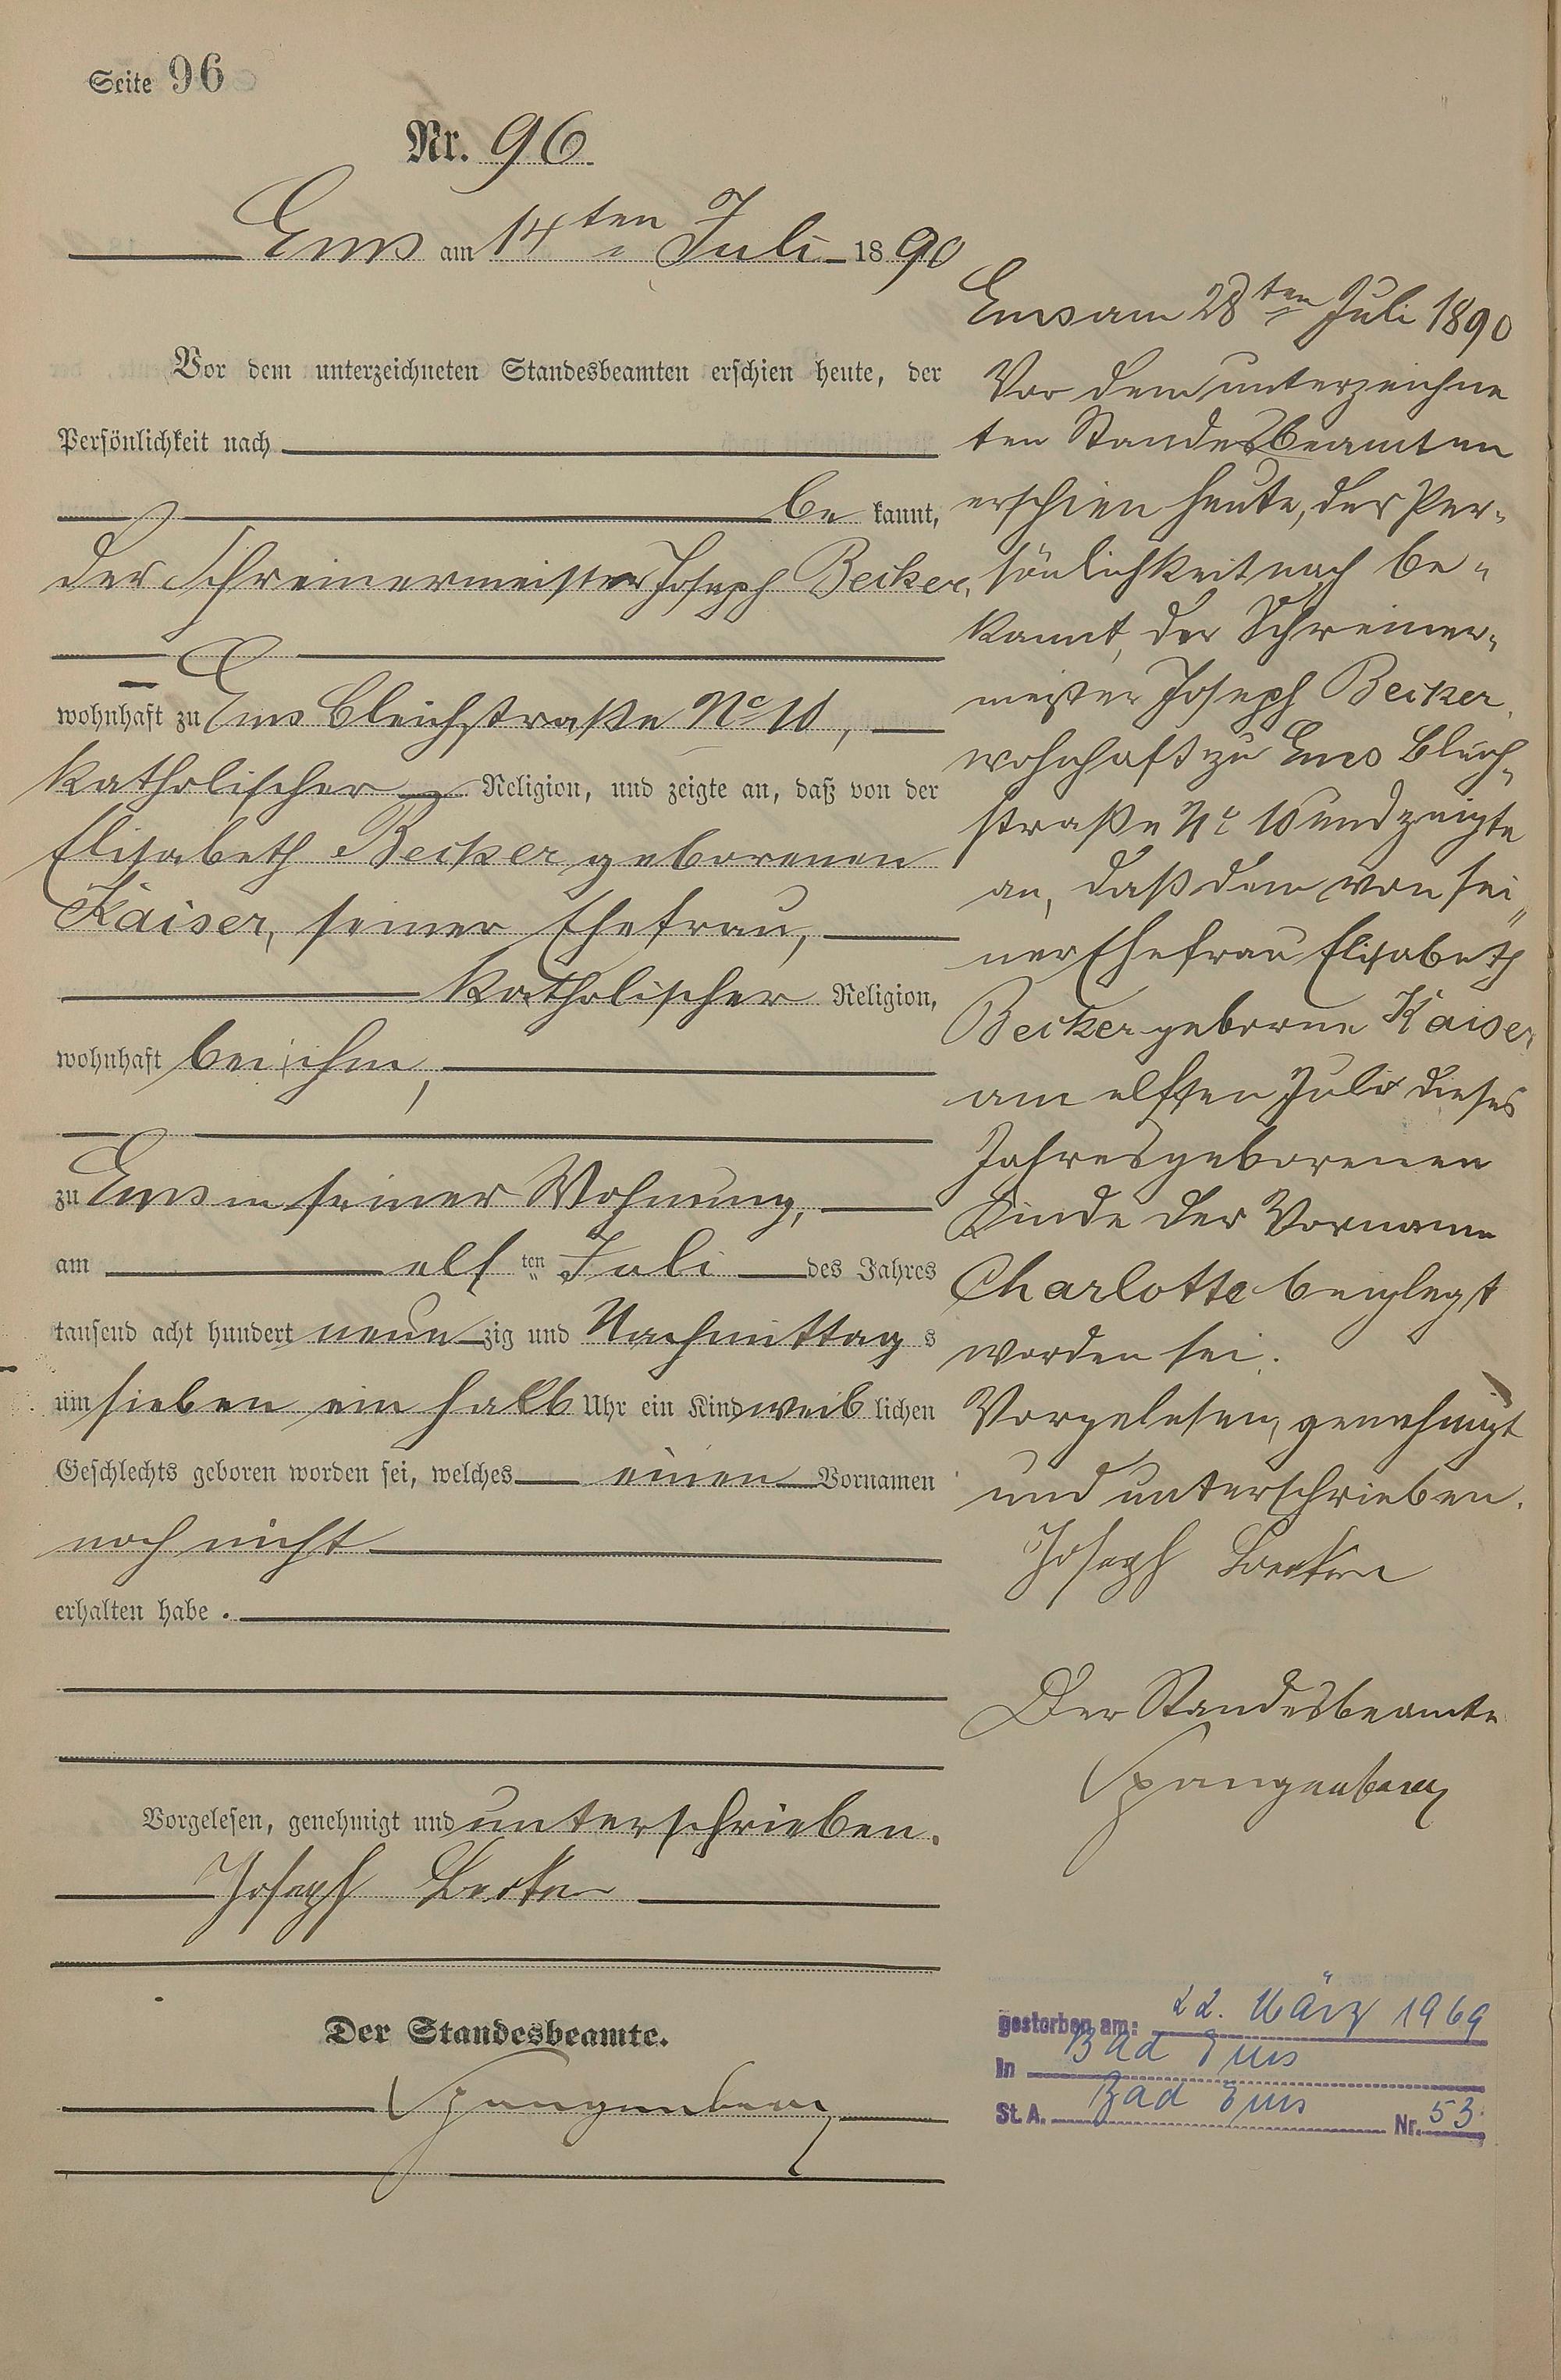 Seite 96
Nr. 96
Ems am 14ten Juli 1890
Vor dem unterzeichneten Standesbeamten erschien heute, der
Persönlichkeit nach
be kannt,
der Schreinermeister Joseph Becker,
wohnhaft zu Ems Bleichstraße No 10,
katholischer Religion, und zeigte an, daß von der
Elisabeth Becker geborenen
Kaiser, seiner Ehefrau,
katholischer Religion,
wohnhaft bei ihm,
zu Ems in seiner Wohnung,
am elf ten Juli des Jahres
tausend acht hundert neun zig und Nachmittag s
um sieben ein halb Uhr ein Kind weib lichen
Geschlechts geboren worden sei, welches einen Vornamen
noch nicht
erhalten habe.
Vorgelesen, genehmigt und unterschrieben.
Joseph Becker
Der Standesbeamte.
Spangenberg
Ems am 28ten Juli 1890
Vor dem unterzeichne
ten Standesbeamten
erschien heute, der Per-
sönlichkeit nach be-
kannt, der Schreiner-
meister Joseph Becker,
wohnhaft zu Ems Bleich-
straße No 10 und zeigte
an, daß dem von sei-
ner Ehefrau Elisabeth
Becker geborne Kaiser
am elften Juli dieses
Jahres geborenen
Kinde der Vorname
Charlotte beigelegt
worden sei.
Vorgelesen, genehmigt
und unterschrieben.
Joseph Becker
Der Standesbeamte
Spangenberg
gestorben am: 22. März 1969
In Bad Ems
St. A. Bad Ems Nr. 53